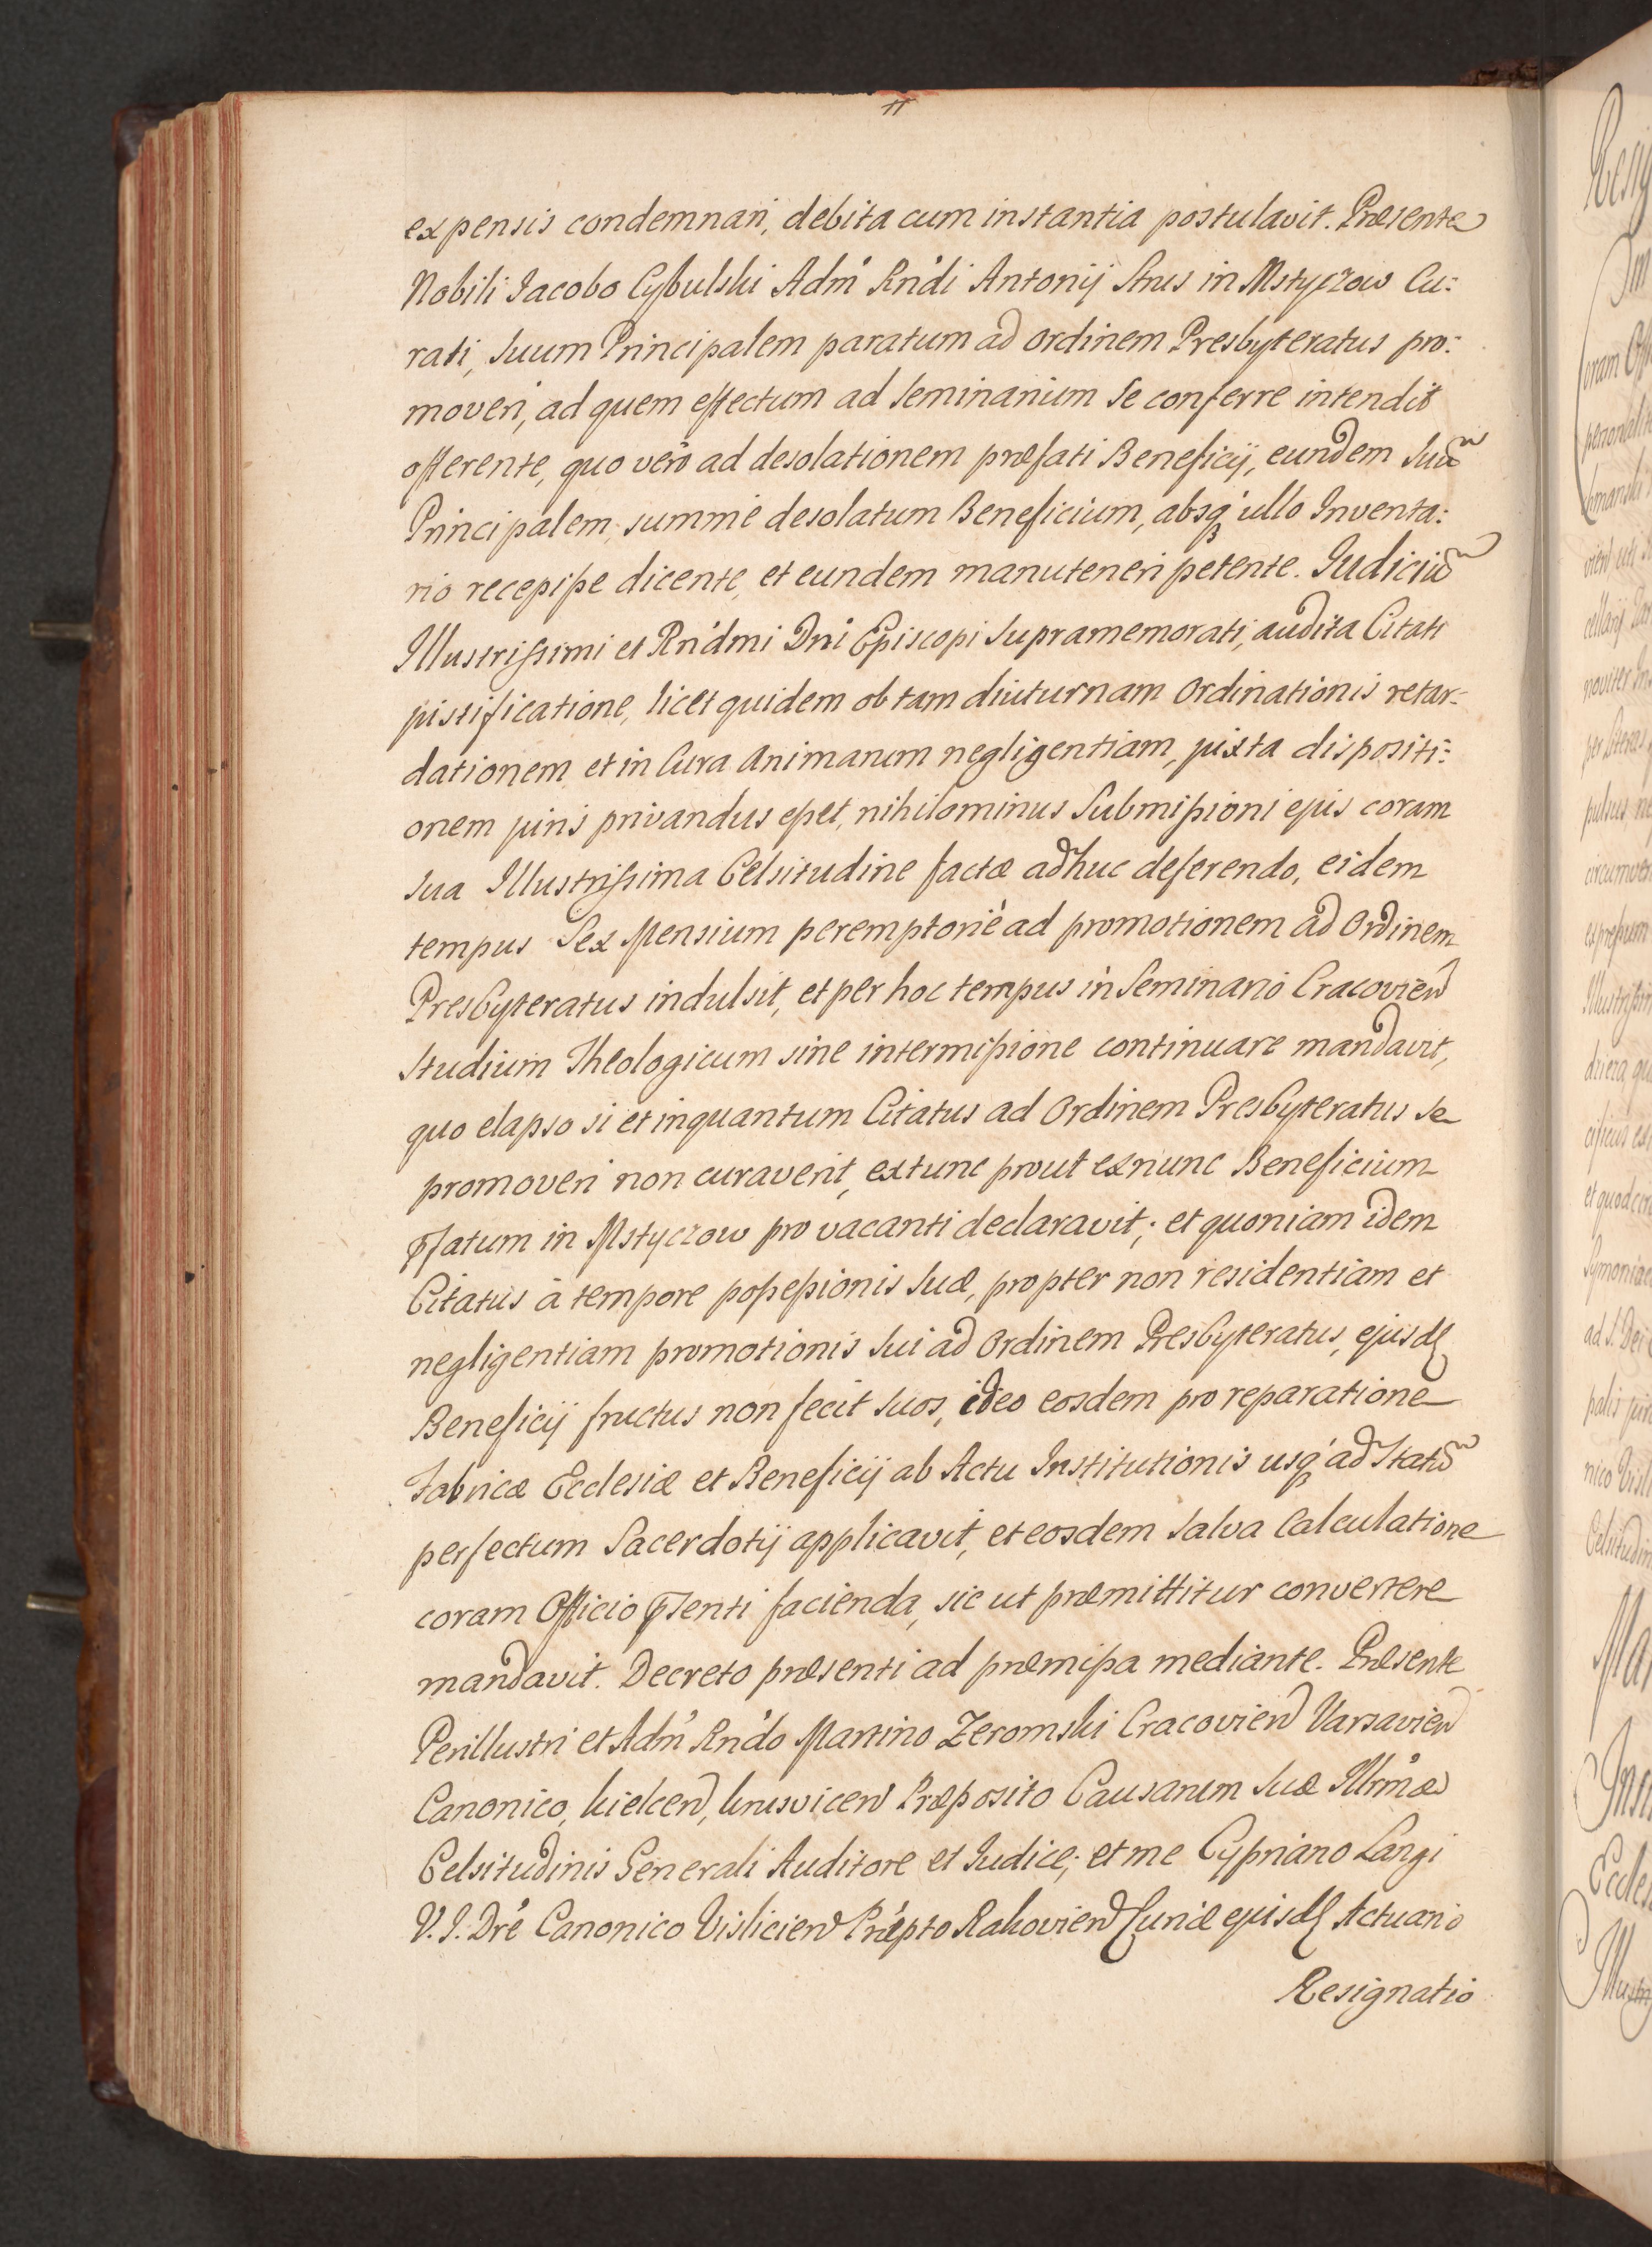 expensis condemnari, debita cum instantia postulavit. Præsente
Nobili Jacobo Cybulski Adm̊ Rńdi Antonij Srus in Mstyczow Cu:
rati, Suum Principalem paratum ad ordinem Presbyteratus pro:
moveri, ad quem effectum ad Seminarium Se conferre intendit
offerente, quo verò ad desolationem præfati Beneficij, eundem Suũ
Principalem, summè desolatum Beneficium, absq́ ullo Inventa:
rio recepisse dicente, et eundem manuteneri petente. Judiciũ
Illustrissimi et Rńdmi Dńi Episcopi Supramemorati, audita Citati
justificatione, licet quidem ob tam diuturnam Ordinationis retar:
dationem et in Cura Animarum negligentiam, juxta dispositi:
onem juris privandus esset, nihilominus Submissioni ejus coram
Sua Illustrissima Celsitudine factæ adhuc deferendo, eidem
tempus Sex Mensium peremptoriè ad promotionem ad Ordinem
Presbyteratus indulsit, et per hoc tempus in Seminario Cracovień
Studium Theologicum sine intermissione continuare mandavit,
quo elapso si et inquantum Citatus ad Ordinem Presbyteratus se
promoveri non curaverit, extunc prout exnunc Beneficium
pſatum in Mstyczow pro vacanti declaravit; et quoniam idem
Citatus à tempore possessionis Suæ, propter non residentiam et
negligentiam promotionis Sui ad Ordinem Presbyteratus, ejusd
Beneficij fructus non fecit Suos, ideo eosdem pro reparatione
Fabricæ Ecclesiæ et Beneficij ab Actu Institutionis usq́ ad Statũ
perfectum Sacerdotij applicavit, et eosdem Salva Calculatione
coram Officio pſenti facienda, sic ut præmittitur convertere
mandavit. Decreto præsenti ad præmissa mediante. Præsente
Perillustri et Adm̊ Rńdo Martino Zeromski Cracovień Varsavień
Canonico, Kielceń, Krusviceń Præposito Causarum Suæ Illrm̊æ
Celsitudinis Generali Auditore et Judice; et me Cypriano Langi
V. J. Dŕe Canonico Visliciеń Præpto Rakovień Curiæ ejusd Actuario
Resignatio